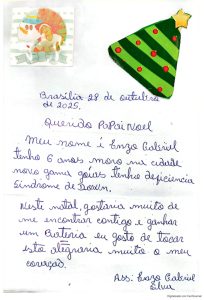 Brasília 28 de outubro
de 2025.
Querido PaPai Noel
Meu nome é Enzo Gabriel
tenho 6 anos moro na cidade
novo gama goiás tenho deficiencia
Síndrome de Down.
Neste natal, gostaria muito de
me encontrar contigo e ganhar
um Bateria eu gosto de tocar
esta alegraria muito o meu
coração.
Ass: Enzo Gabriel
Silva